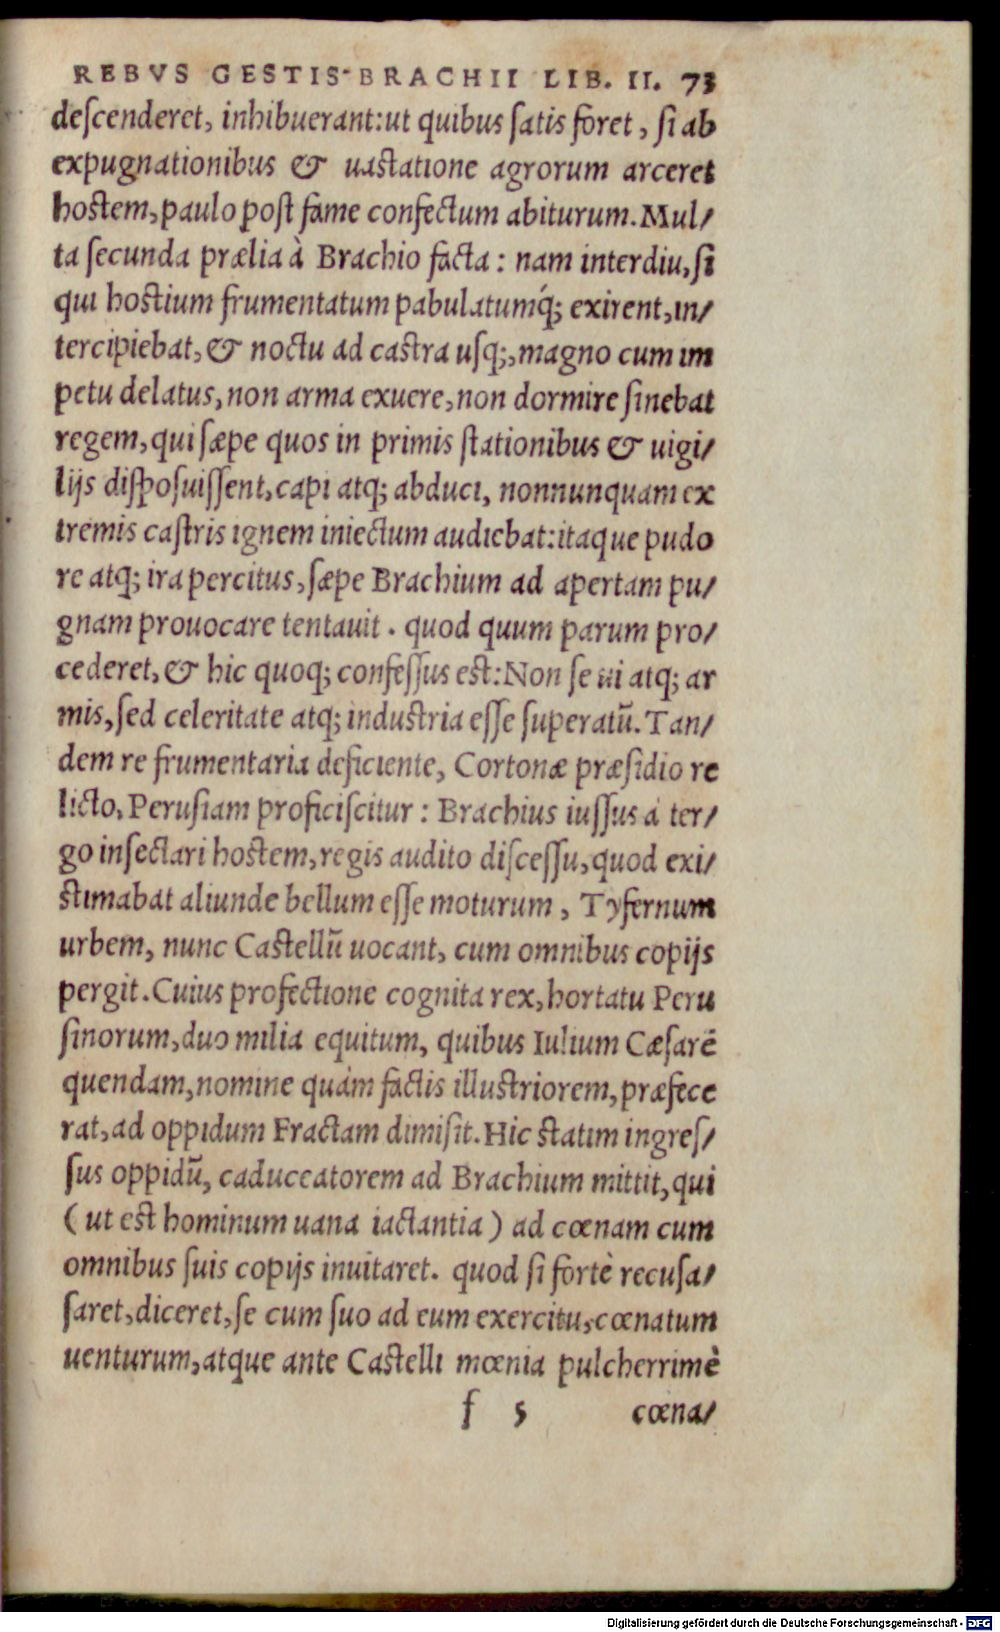 REBVS GESTIS BRACHII LIB. II. 73
deſcenderet, inhibuerant: ut quibus ſatis foret, ſi ab
expugnationibus & uastatione agrorum arceret
hostem, paulo poſt fame confectum abiturum. Mul/
ta ſecunda prælia à Brachio facta: nam interdiu, ſi
qui hostium frumentatum pabulatumq́; exirent, in/
tercipiebat, & noctu ad castra uſq;, magno cum im
petu delatus, non arma exuere, non dormire ſinebat
regem, qui ſæpe quos in primis ſtationibus & uigi/
lijs diſpoſuiſſent, capi atq; abduci, nonnunquam ex
tremis caſtris ignem iniectum audiebat: itaque pudo
re atq; ira percitus, ſæpe Brachium ad apertam pu/
gnam prouocare tentauit. quod quum parum pro/
cederet, & hic quoq; confeſſus est: Non ſe ui atq; ar
mis, ſed celeritate atq; industria eſſe ſuperatū. Tan/
dem re frumentaria deficiente, Cortonæ præſidio re
licto, Peruſiam proficiſcitur: Brachius iuſſus à ter/
go inſectari hostem, regis audito diſceſſu, quod exi/
stimabat aliunde bellum eſſe moturum, Tyfernum
urbem, nunc Castellū uocant, cum omnibus copijs
pergit. Cuius profectione cognita rex, hortatu Peru
ſinorum, duo milia equitum, quibus Iulium Cæſarē
quendam, nomine quàm factis illustriorem, præfece
rat, ad oppidum Fractam dimiſit. Hic statim ingreſ/
ſus oppidū, caduceatorem ad Brachium mittit, qui
(ut est hominum uana iactantia) ad cœnam cum
omnibus ſuis copijs inuitaret. quod ſi fortè recuſa/
ſaret, diceret, ſe cum ſuo ad eum exercitu, cœnatum
uenturum, atque ante Castelli mœnia pulcherrimè
f 5 cœna/
Digitalisierung gefördert durch die Deutsche Forschungsgemeinschaft - DFG